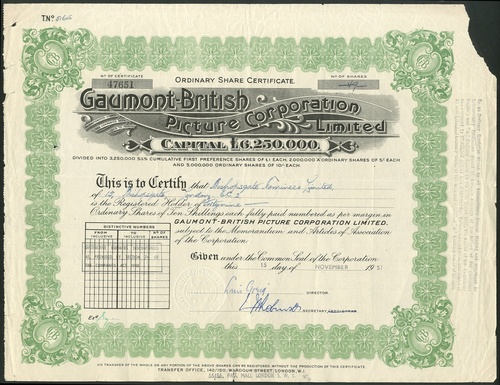 T.Nº
Nº OF CERTIFICATE
47651
ORDINARY SHARE CERTIFICATE.
Nº OF SHARES
Gaumont-British
Picture Corporation
Limited
CAPITAL £6,250,000.
DIVIDED INTO 3,250,000 5½% CUMULATIVE FIRST PREFERENCE SHARES OF £1 EACH, 2,000,000 A ORDINARY SHARES OF 5/- EACH
AND 5,000,000 ORDINARY SHARES OF 10/- EACH
This is to Certify that Bishopsgate Nominees Limited,
of 15, Bishopsgate, London, E.C.2
is the Registered Holder of
Ordinary Shares of Ten Shillings each fully paid numbered as per margin in
GAUMONT-BRITISH PICTURE CORPORATION LIMITED.
subject to the Memorandum and Articles of Association
of the Corporation.
DISTINCTIVE NUMBERS
FROM INCLUSIVE
TO INCLUSIVE
Nº OF SHARES
Given under the Common Seal of the Corporation
this 15 day of NOVEMBER 1951
DIRECTOR
SECRETARY
NO TRANSFER OF THE WHOLE OR ANY PORTION OF THE ABOVE SHARES CAN BE REGISTERED, WITHOUT THE PRODUCTION OF THIS CERTIFICATE.
TRANSFER OFFICE, 142/150, WARDOUR STREET, LONDON, W.1
PALL MALL LONDON S.W.